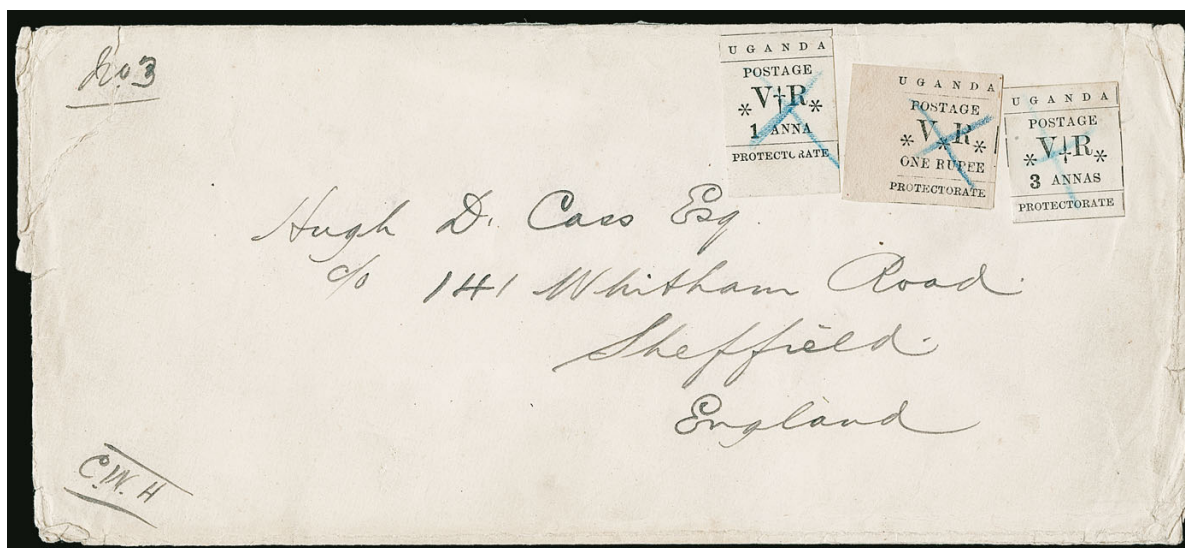 No 3
UGANDA
POSTAGE
* V†R *
1 ANNA
PROTECTORATE
UGANDA
POSTAGE
* V * R *
ONE RUPEE
PROTECTORATE
UGANDA
POSTAGE
* V†R *
3 ANNAS
PROTECTORATE
Hugh D. Cass Esq
c/o 141 Whitham Road.
Sheffield.
England
C.W.H